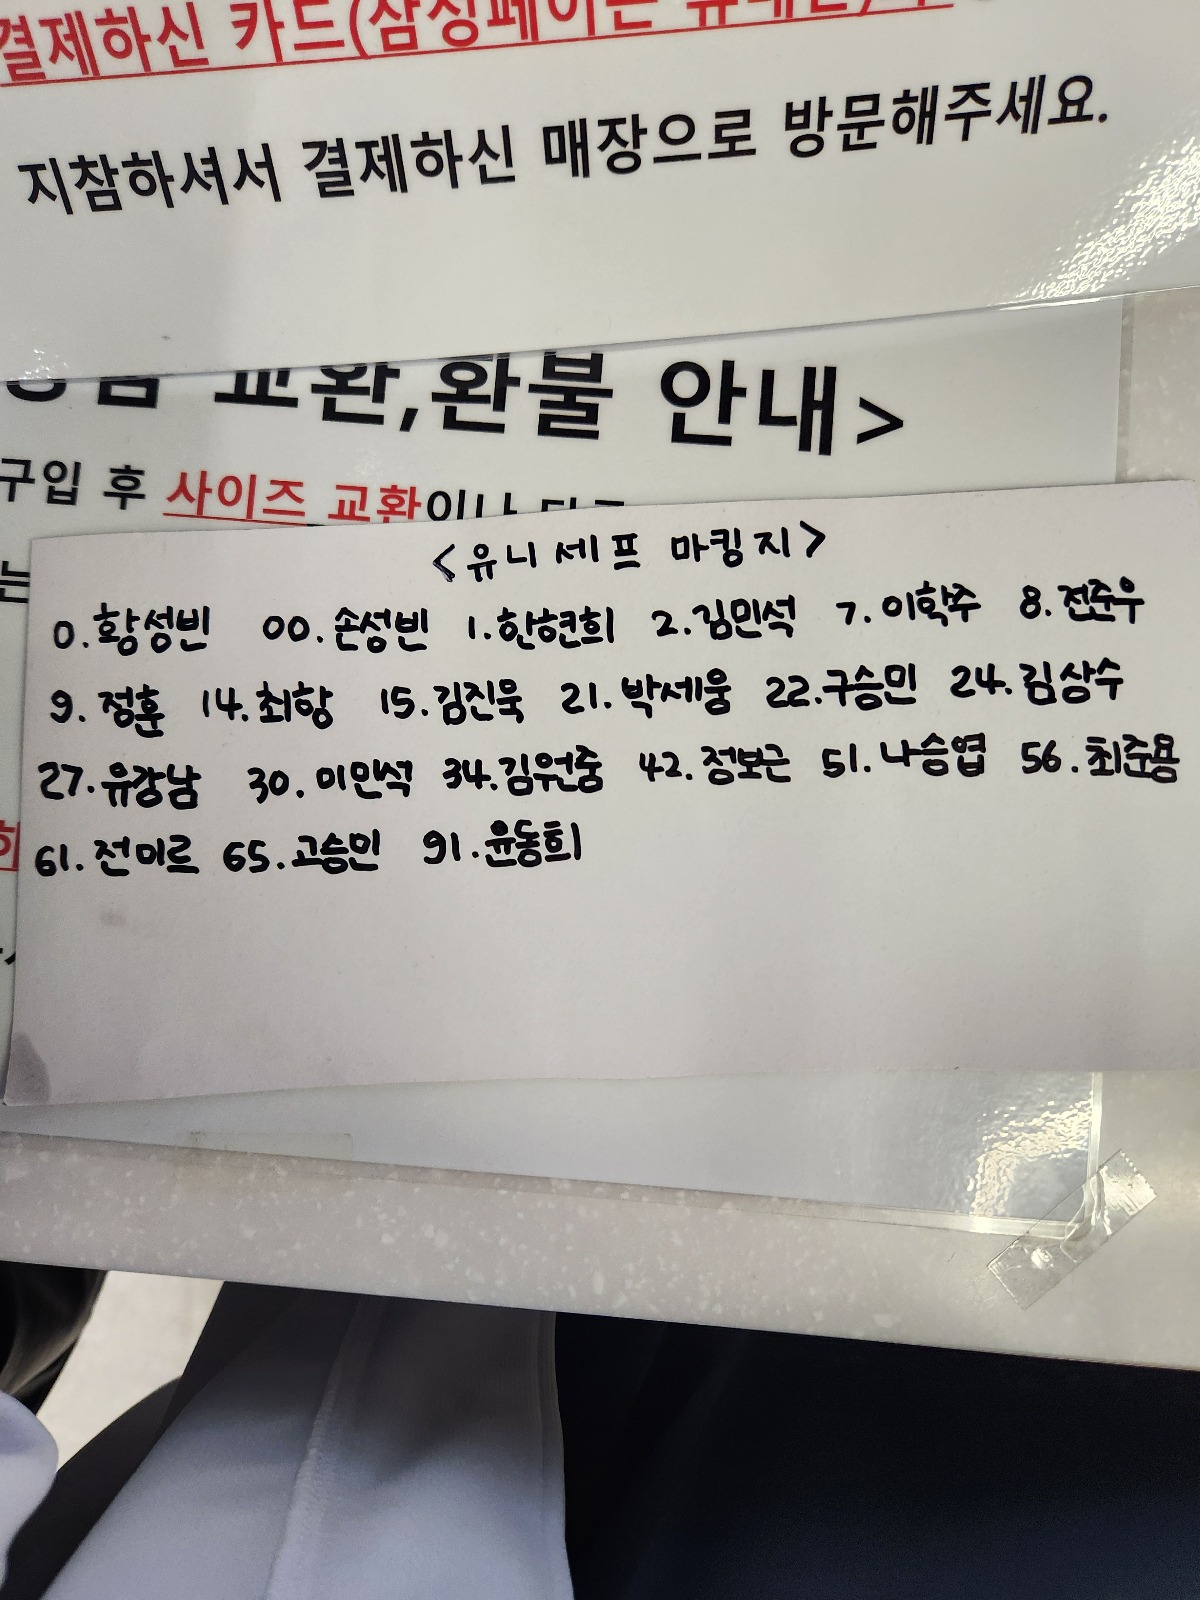 결제하신 카드(삼성페이는
지참하셔서 결제하신 매장으로 방문해주세요.
교환,환불 안내>
구입 후 사이즈 교환이나
는
<유니세프 마킹지>
0.황성빈 00.손성빈 1.한현희 2.김민석 7.이학주 8.전준우
9.정훈 14.최항 15.김진욱 21.박세웅 22.구승민 24.김상수
27.유강남 30.이인석 34.김원중 42.정보근 51.나승엽 56.최준용
61.전미르 65.고승민 91.윤동희